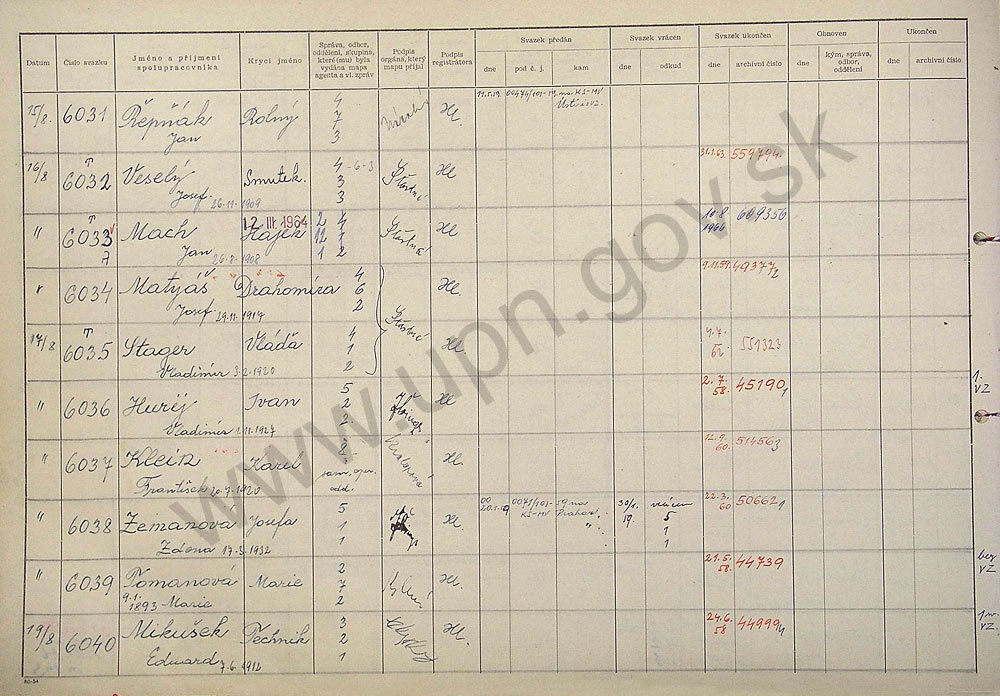 Datum Číslo svazku Jméno a příjmení spolupracovníka Krycí jméno Správa, odbor, oddělení, skupina, které(mu) byla vydána mapa agenta a vl. zpráv Podpis orgána, který mapu přijal Podpis registrátora Svazek předán Svazek vrácen Svazek ukončen Obnoven Ukončen
dne pod č. j. kam dne odkud dne archivní číslo dne kým, správa, odbor, oddělení dne archivní číslo
15/8. 6031 Řepňák Rolný 4 7 3 Hl.
Jan
Ústí n/L.
16/8 6032 Veselý Smutek. 4-6-3 3 3 Šťastné Hl 31.1.63. 559794
Josef 26.11.1909
" 6033 Mach 12. III. 1964 Hájek 2 4 12 1 1 2 Šťastné Hl 10.8 1966 609356
7 Jan 26.8.1908
6034 Matyáš Drahomíra 4 6 2 Šťastné Hl. 9.11.59. 49377/2
Josef 29.11.1917
17/8 6035 Stager Vláďa 4 1 2 Hl 551323
Vladimír 3.2.1920
" 6036 Huřij Ivan 5 2 2. Hl 2.7.58. 45190/1 1. VZ
Vladimír 1.11.1927
" 6037 Klein Karel 2. sam. oper. odd. Hl. 12.9.60. 51456/3
František 20.7.1920
" 6038 Zemanová Josefa 5 1 1 Hl. 20.1.59 0071/101-59 na KS-MV Prahas. 30/1. 59. vrácen 5 1 1 22.3.60 50662/1
Zdena 17.3.1932
" 6039 Tomanová Marie 2 7 2 Hl. 21.5.58. 44739 bez VZ
9.1.1893 Marie
19/8 6040 Mikušek Technik 3 2 1 Hl. 24.6.58 44999/4 VZ.
Edward 7.6.1912
www.upn.gov.sk